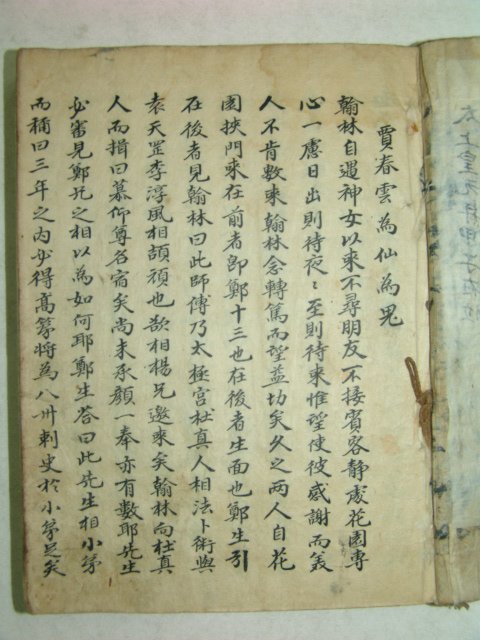 賈春雲為仙為鬼
翰林自遇神女以來不尋朋友不接賓客静處花園專
心一慮日出則待夜〻至則待來惟望使彼感謝而美
人不肯數來翰林念轉篤而望益切矣久之两人自花
園挾門來在前者卽鄭十三也在後者生面也鄭生引
在後者見翰林曰此師傅乃太極宮杜真人相法卜術與
袁天罡李淳風相頡頏也欲相楊兄邀來矣翰林向杜真
人而揖曰慕仰尊名宿矣尚未承顏一奉亦有數耶先生
必審見鄭兄之相以為如何耶鄭生答曰此先生相小弟
而稱曰三年之內必得高第將為八州刺史於小弟足矣
太上皇